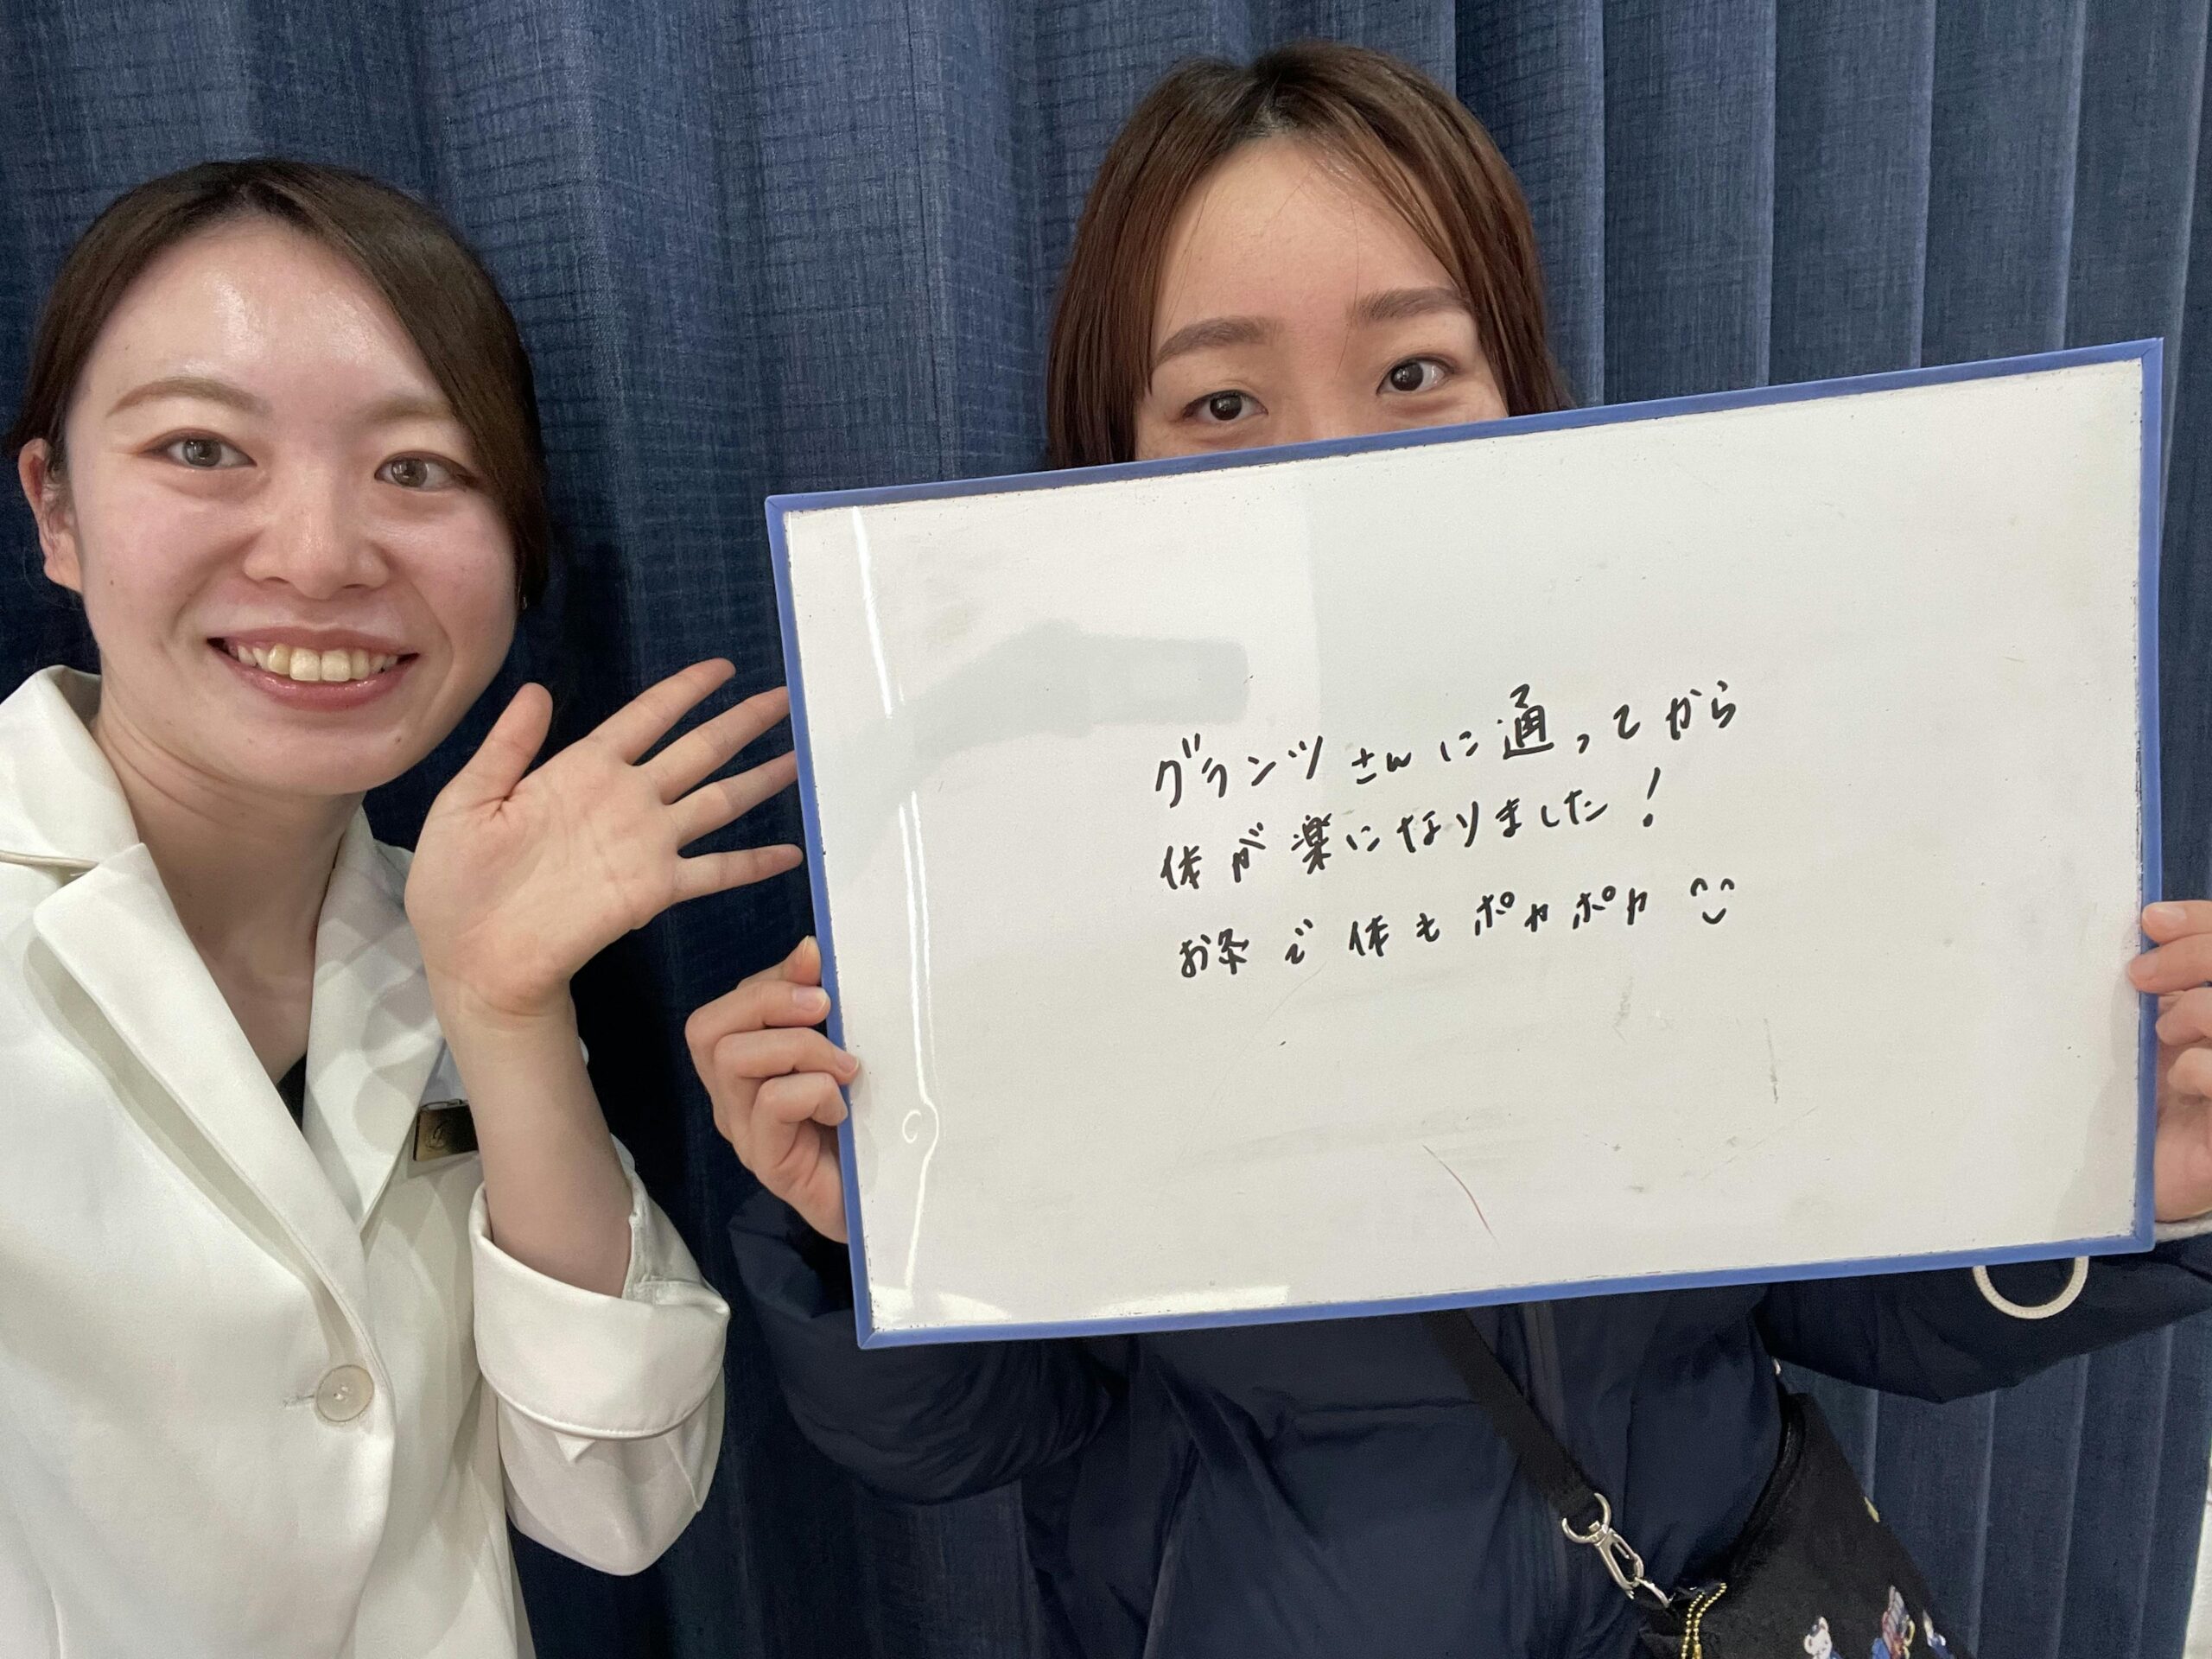 グランツさんに通ってから
体が楽になりました！
お茶で体もポカポカ